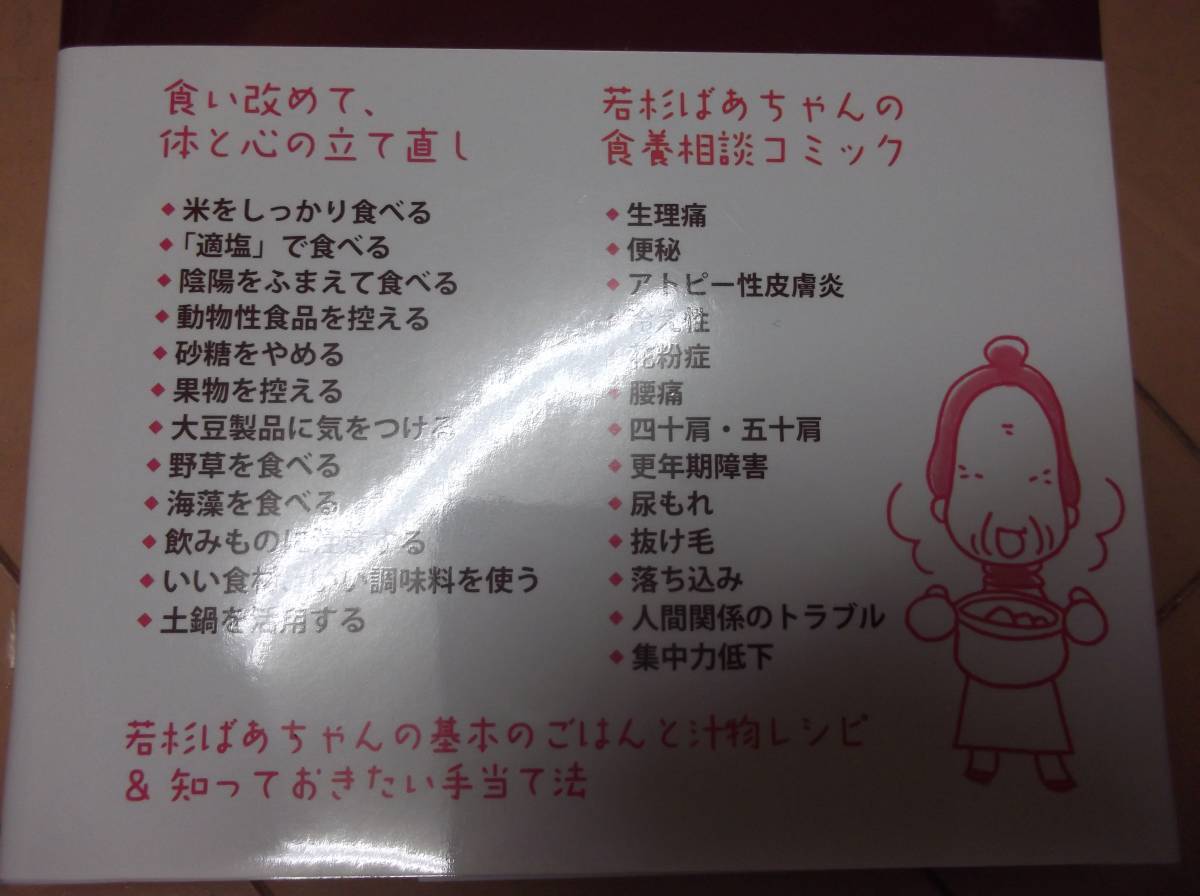 食い改めて、
体と心の立て直し
◆米をしっかり食べる
◆「適塩」で食べる
◆陰陽をふまえて食べる
◆動物性食品を控える
◆砂糖をやめる
◆果物を控える
◆大豆製品に気をつける
◆野草を食べる
◆海藻を食べる
◆飲みものに注意する
◆いい食材、いい調味料を使う
◆土鍋を活用する
若杉ばあちゃんの
食養相談コミック
◆生理痛
◆便秘
◆アトピー性皮膚炎
◆冷え性
◆花粉症
◆腰痛
◆四十肩・五十肩
◆更年期障害
◆尿もれ
◆抜け毛
◆落ち込み
◆人間関係のトラブル
◆集中力低下
若杉ばあちゃんの基本のごはんと汁物レシピ
& 知っておきたい手当て法